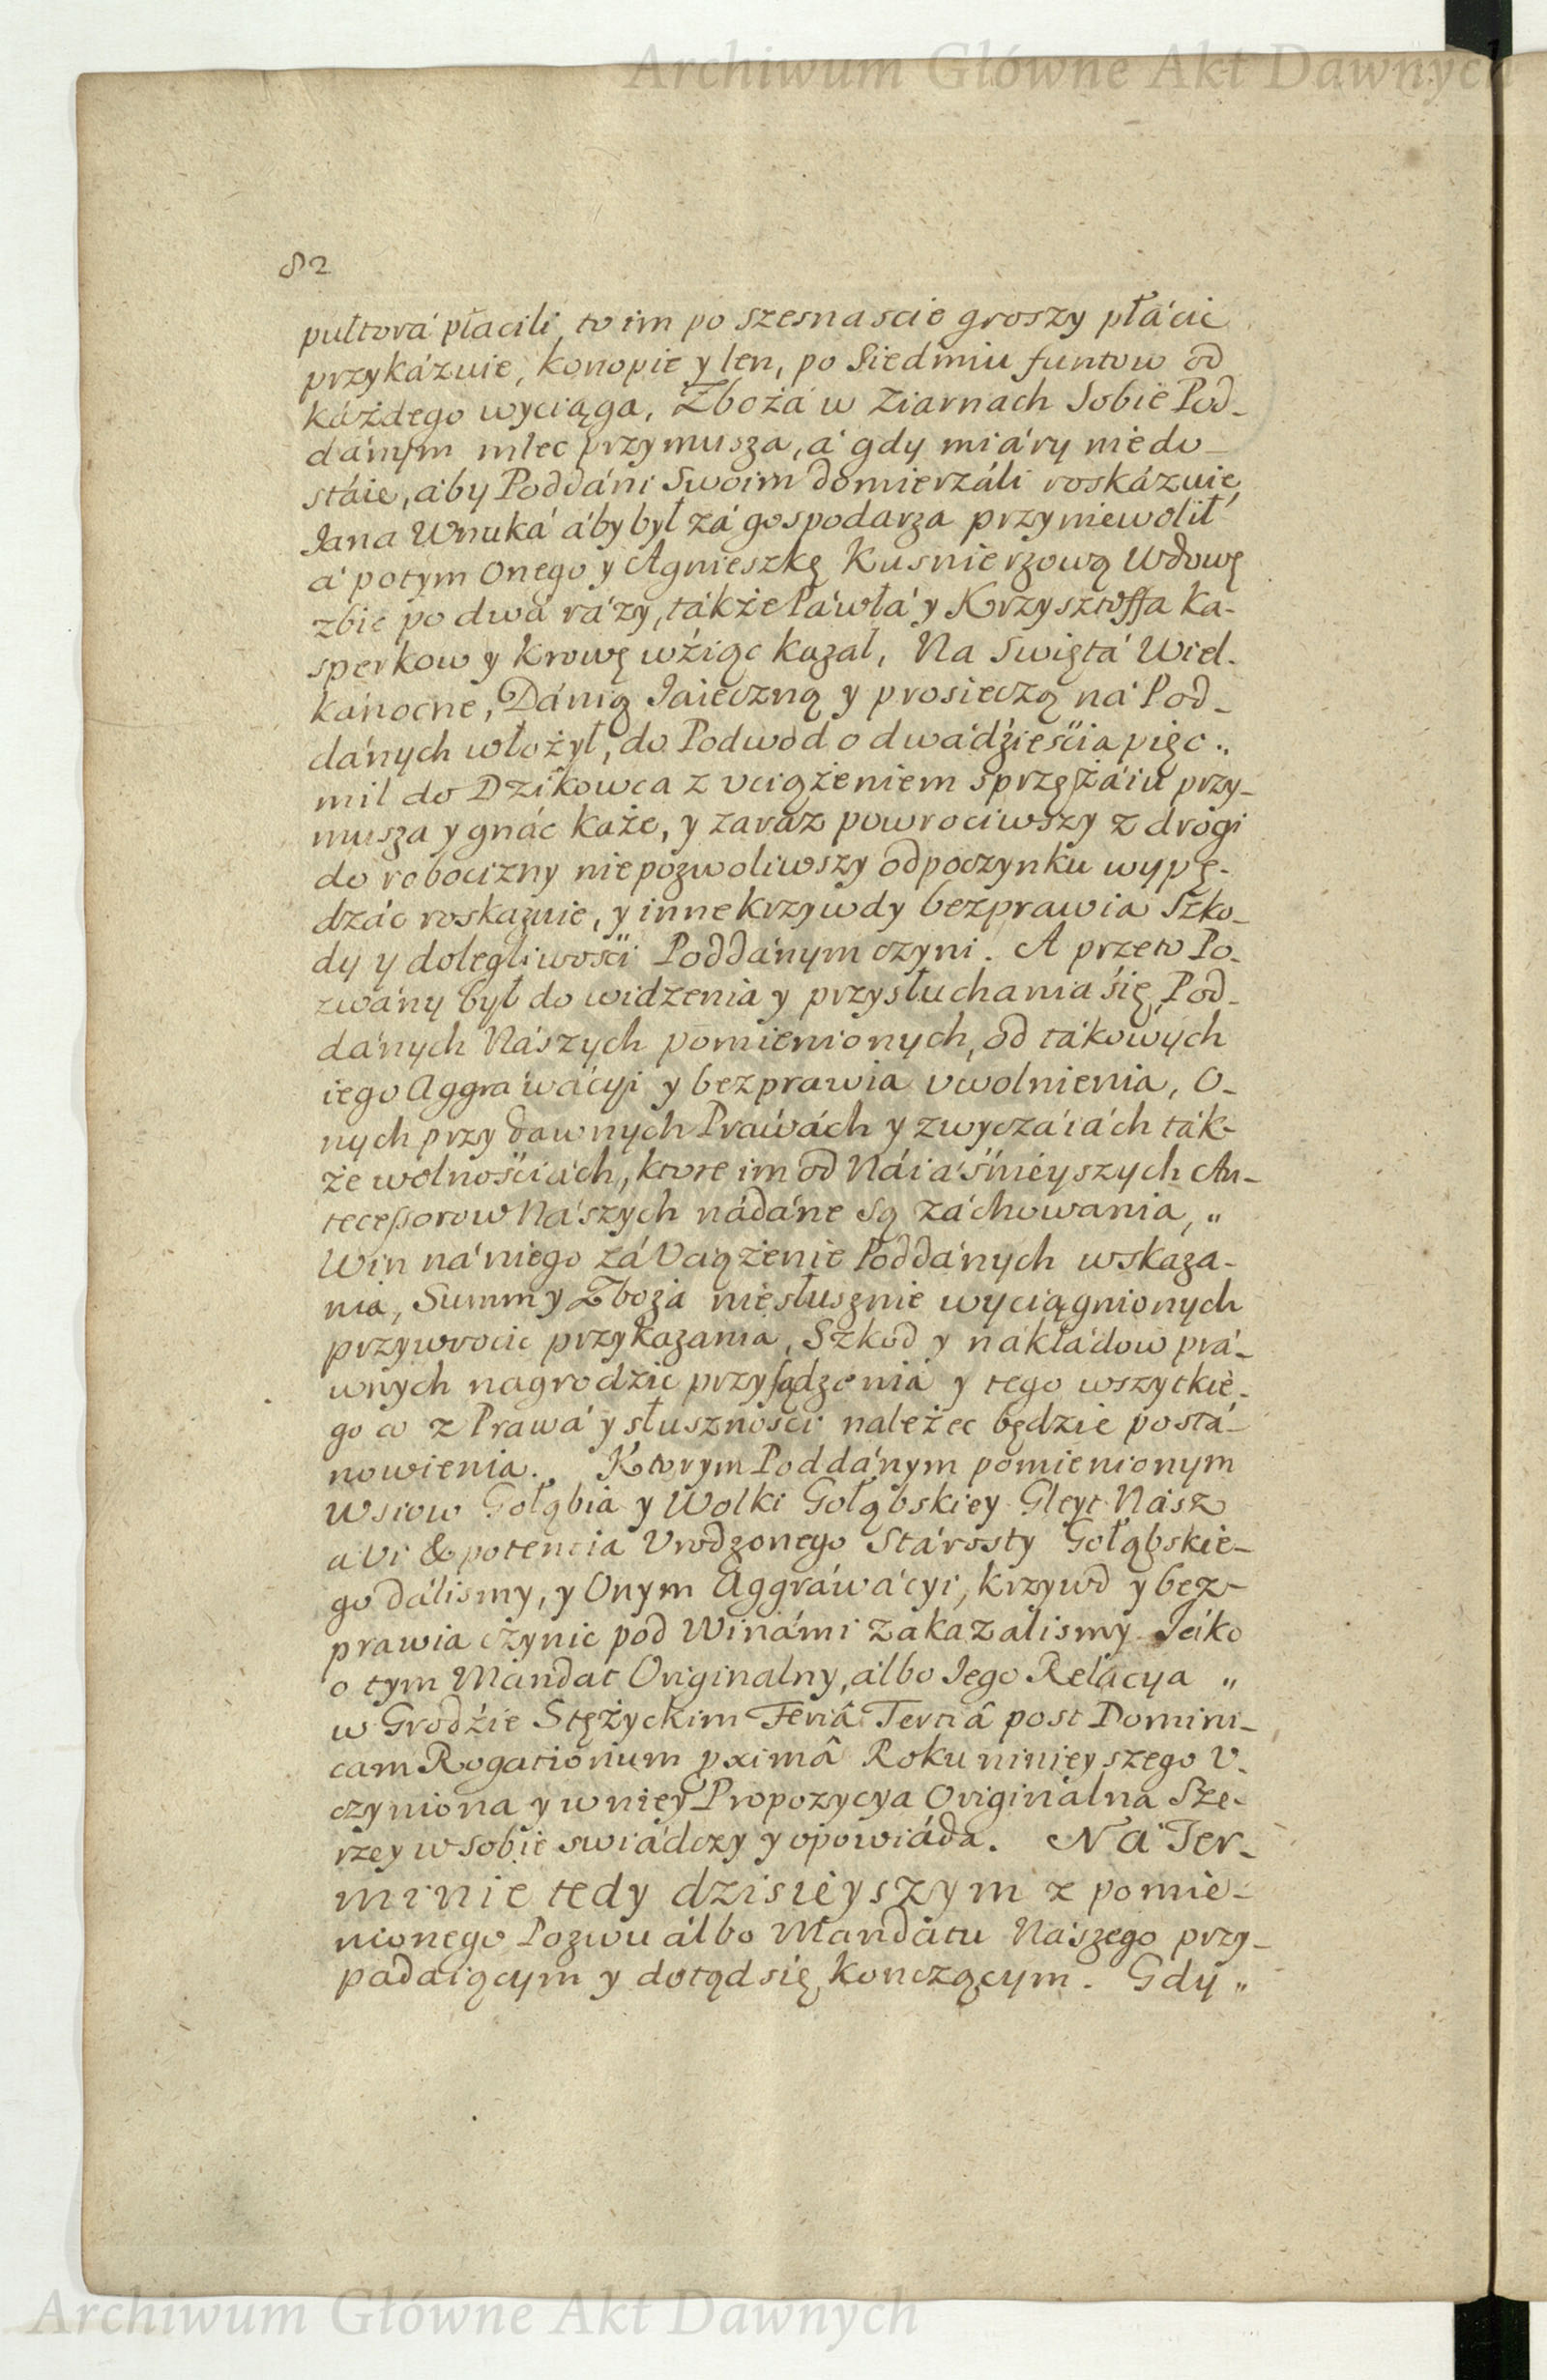 Archiwum Główne Akt Dawnych
82
pułtorá płacili, to im po szesnascie groszy płácic
przykázuie, konopie y len, po Siedmiu funtow od
káżdego wyciąga, Zbożá w Ziarnach Sobie Pod-
dánym mlec przymusza, á gdy miáry niedo-
stáie, áby Poddáni Swoim domierzáli roskázuie,
Iana Wnuká áby był zá gospodarza przyniewolił
á potym Onego y Agnieszkę Kusnierzową Wdowę
zbic po dwá rázy, tákże Páwłá y Krzysztoffa Ka-
sperkow y Krowę wźiąc kazał, Na Swiętá Wiel-
kánocne, Dánią Iaieczną y prosieczą ná Pod-
dánych włożył, do Podwod o dwádźieśćia pięc „
mil do Dzikowca z vciążeniem sprzężáiu przy-
musza y gnác każe, y zaraz powrociwszy z drogi
do robocizny niepozwoliwszy odpoczynku wypę-
dzác roskazuie, y inne krzywdy bezprawia Szko-
dy y dolegliwości Poddánym czyni. A przeto Po-
zwány był do widzenia y przysłuchania śię Pod-
dánych Nászych pomienionych, od tákowych
iego Aggrawácyi y bezprawia vwolnienia, O-
nych przy dawnych Práwách y zwyczáiách ták-
że wolnośćiách, ktore im od Náiáśnieyszych An-
tecessorow Nászych nádáne są záchowania, „
Win ná niego zá Vciążenie Poddánych wskaza-
nia, Summ y Zboża niesłusznie wyciągnionych
przywrocic przykazania, Szkod y nakłádow prá-
wnych nagrodzic przysądzenia y tego wszytkie-
go co z Prawá y słuszności należec będzie postá-
nowienia. Ktorym Poddánym pomienionym
Wsiow Gołąbia y Wolki Gołąbskiey Gleyt Nász
a Vi & potentia Vrodzonego Stárosty Gołąbskie-
go dálismy, y Onym Aggráwácyi, krzywd y bez-
prawia czynic pod Winámi zakazalismy. Iáko
o tym Mandat Originalny, álbo Iego Relácya „
w Grodźie Stężyckim Feriâ Tertiâ post Domini-
cam Rogationum pximâ Roku ninieyszego V-
czyniona y w niey Propozycya Originalna Sze-
rzey w Sobie swiádczy y opowiáda. Ná Ter-
minie tedy dzisieyszym z pomie-
nionego Pozwu álbo Mandatu Nászego przy-
padaiącym y dotąd się konczącym. Gdy „
Archiwum Główne Akt Dawnych